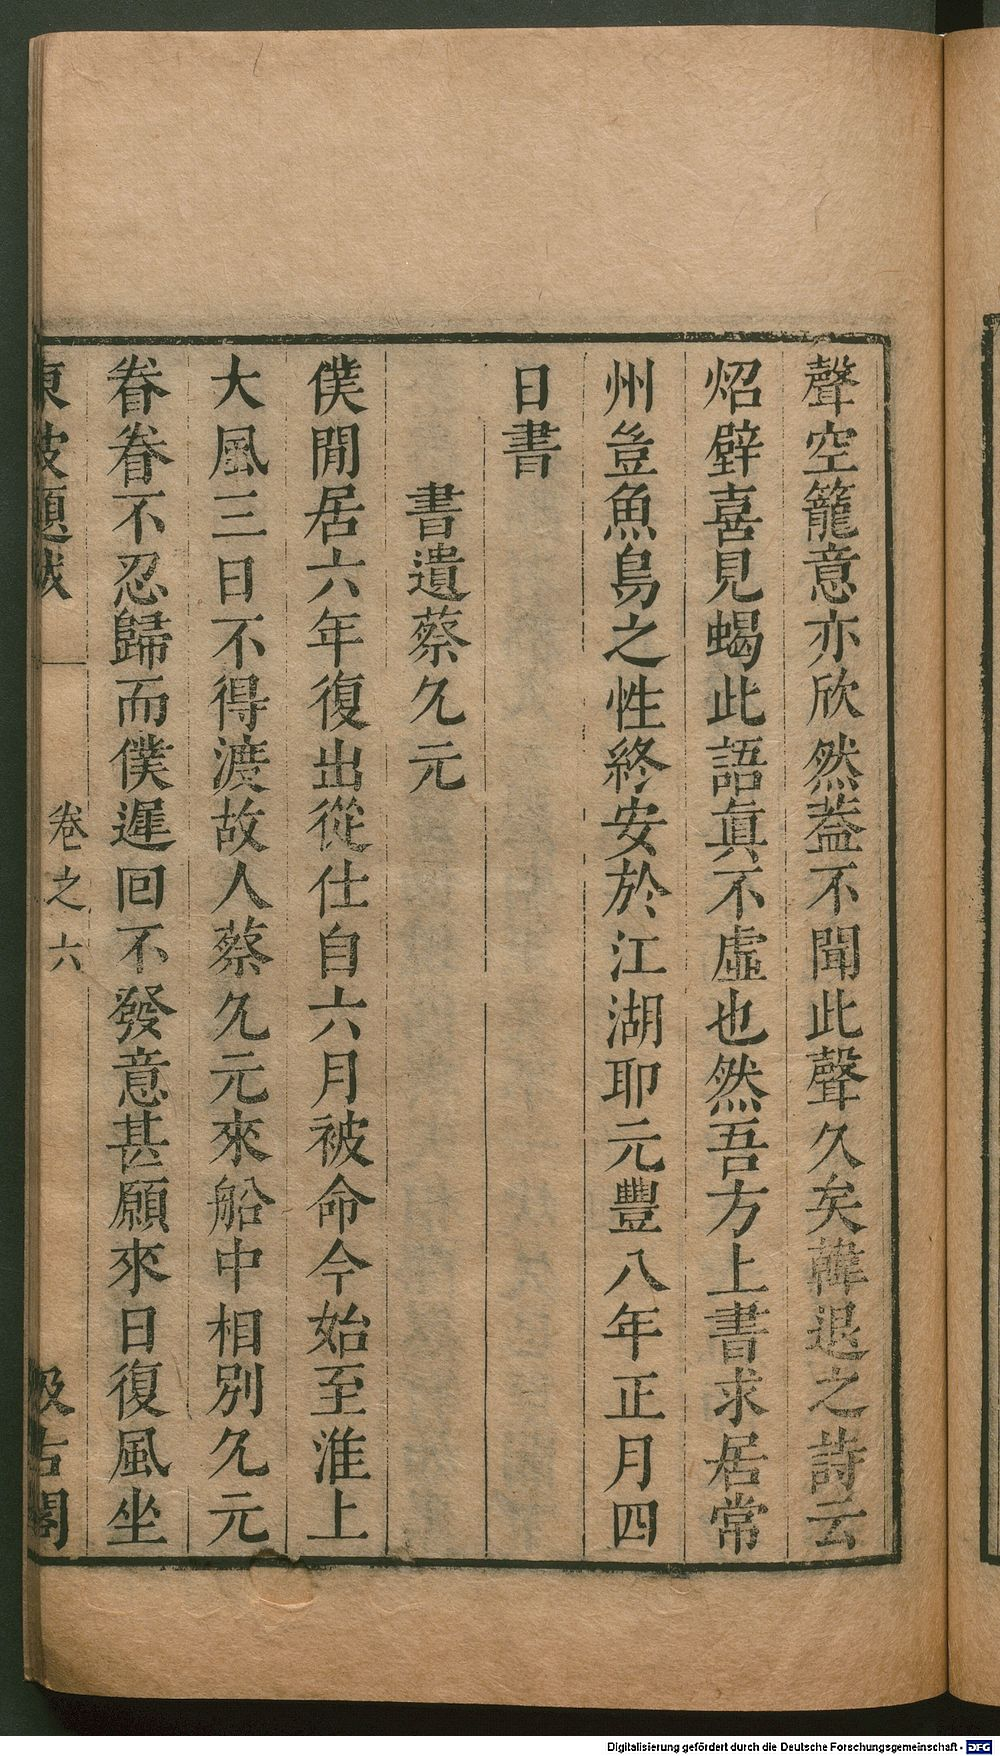 聲空籠意亦欣然葢不聞此聲久矣韓退之詩云
炤壁喜見蝎此語眞不虛也然吾方上書求居常
州豈魚鳥之性終安於江湖耶元豐八年正月四
日書
書遺蔡允元
僕閒居六年復出從仕自六月被命今始至淮上
大風三日不得渡故人蔡允元來船中相別允元
眷眷不忍歸而僕遲回不發意甚願來日復風坐
東坡題跋 卷之六 汲古閣
Digitalisierung gefördert durch die Deutsche Forschungsgemeinschaft - DFG